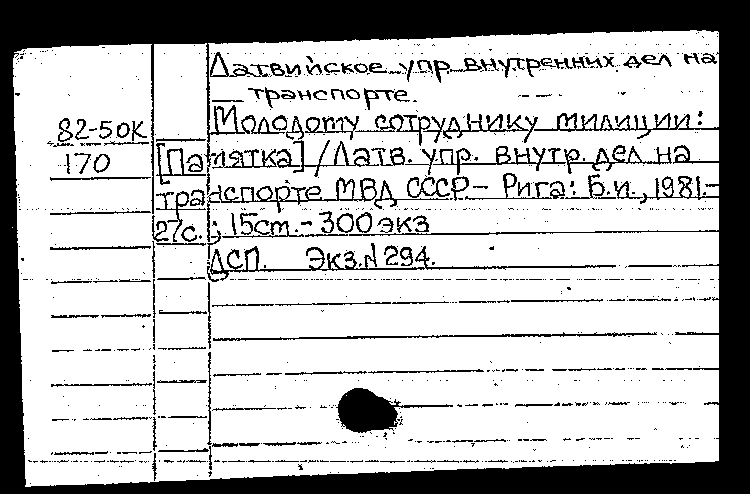 Латвийское упр внутренних дел на
транспорте.
82-50К Молодому сотруднику милиции:
170 [Памятка] / Латв. упр. внутр. дел на
транспорте МВД СССР - Рига: Б.и., 1981.-
27с. ; 15см. - 300 экз
ДСП. Экз. N 294.